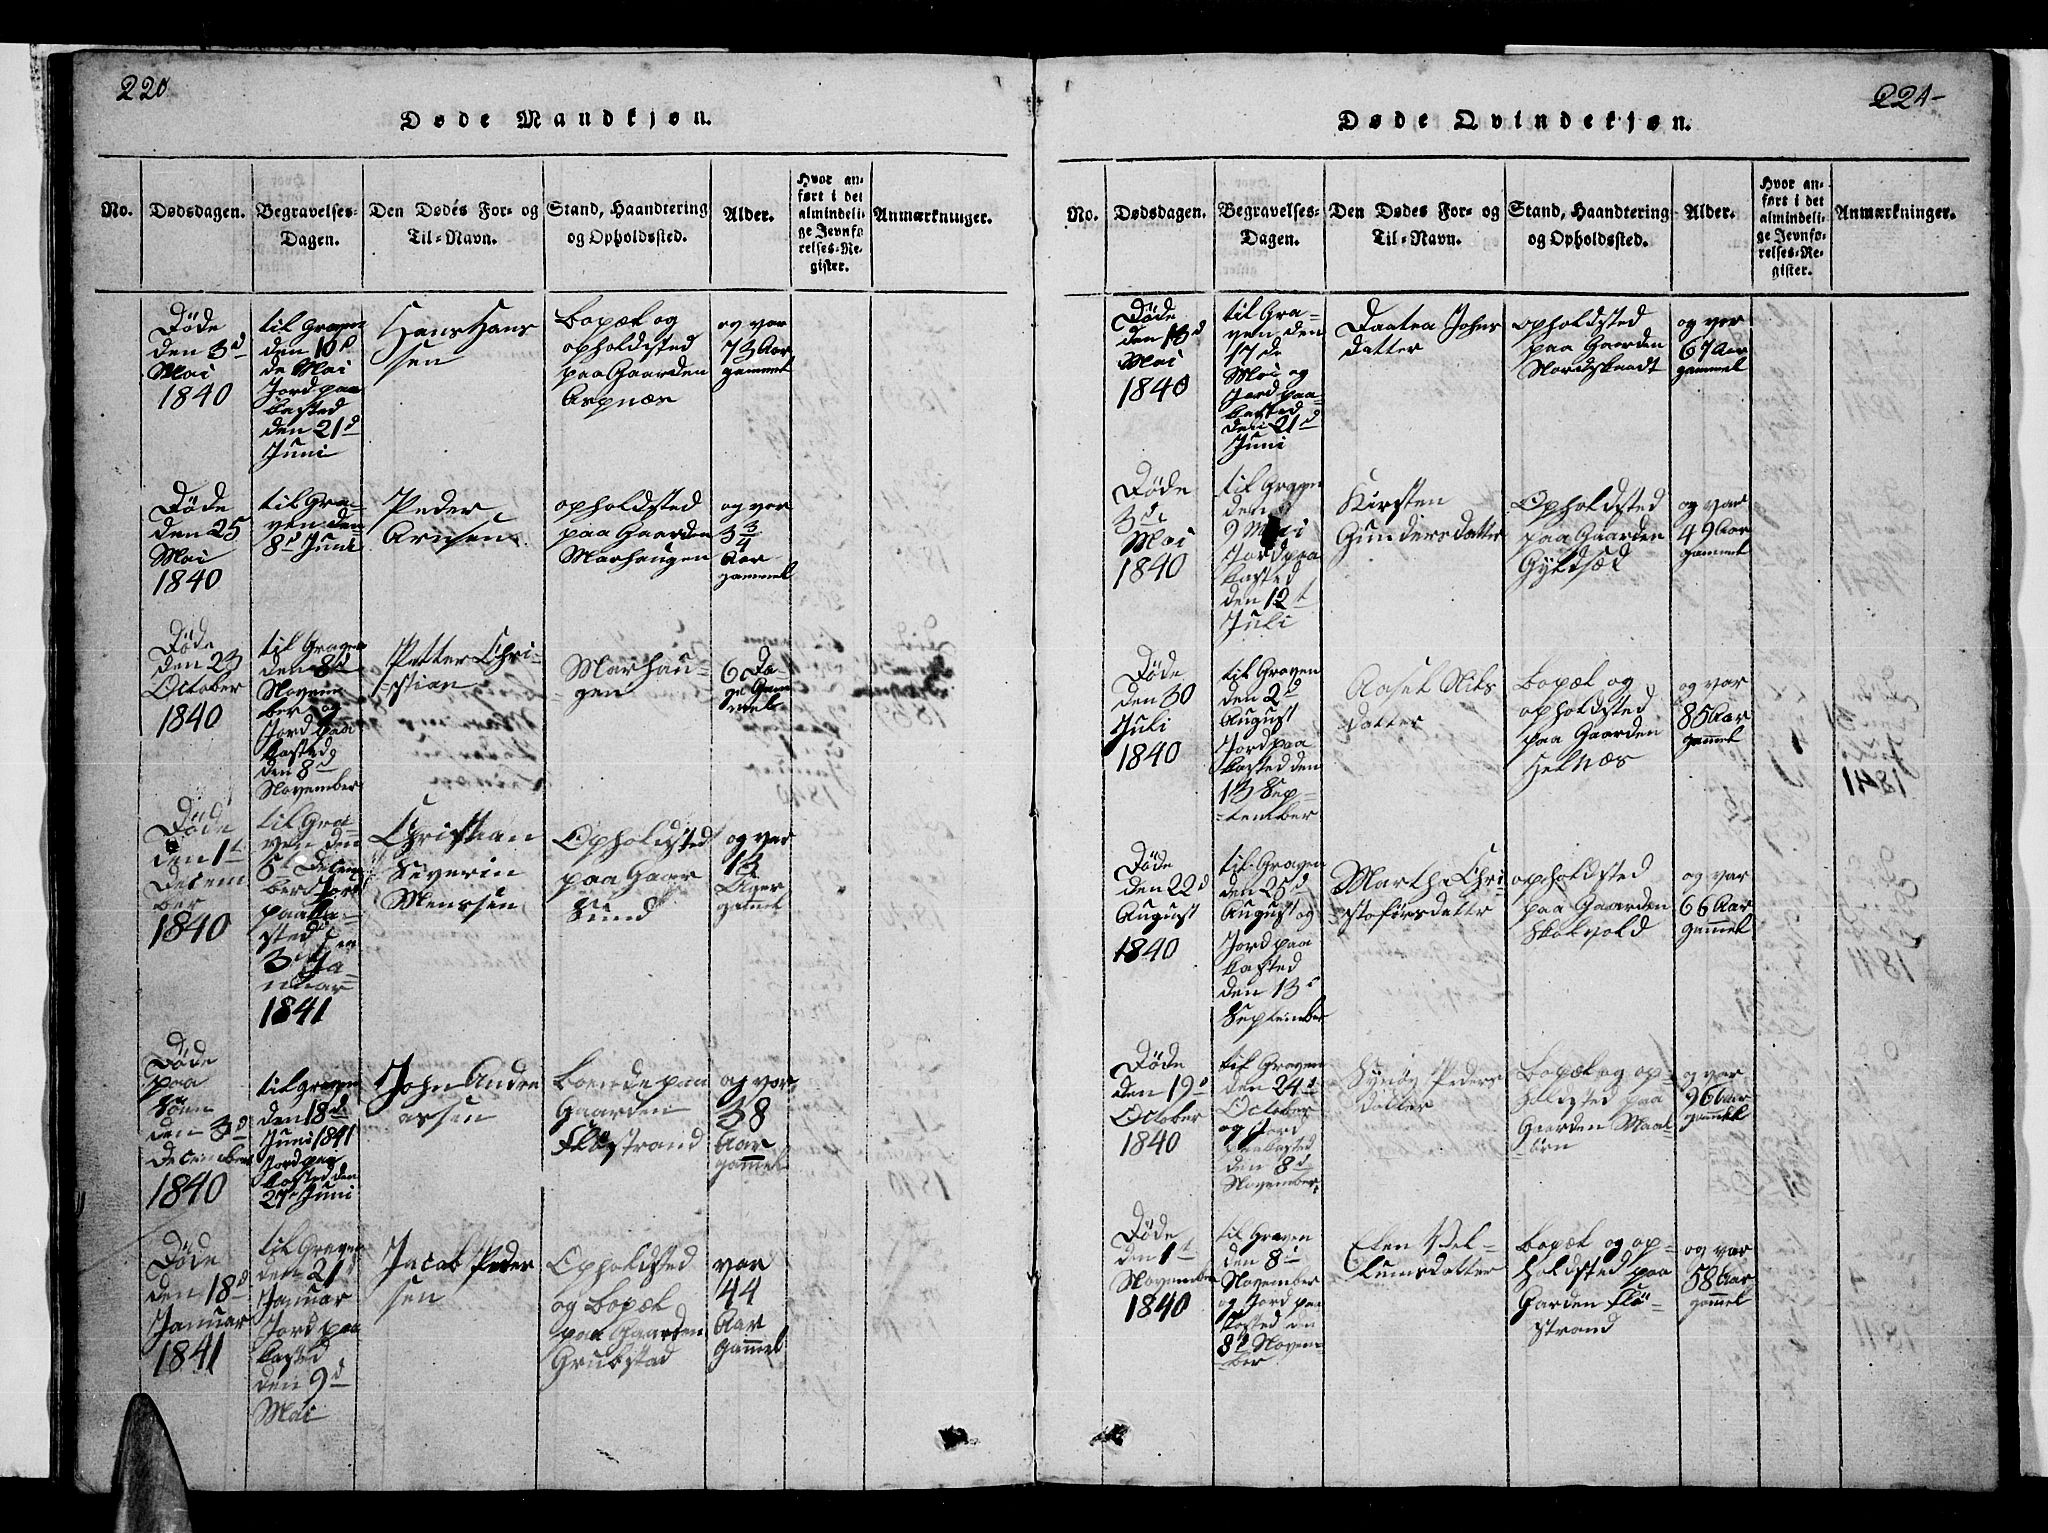 220
Døde Mandkjøn.
No.
Dødsdagen.
Begravelses-
Dagen.
Den Dødes For- og
Til-Navn.
Stand, Haandtering
og Opholdssted.
Alder.
Hvor an-
ført i det
almindeli-
ge Jevnfø-
relses-Re-
gister.
Anmærkninger.
Døde
den 3d
Mai
1840
til Graven
den 10d
de Mai
Jord paa
kasted
den 21d
Juni
Hans Hans
sen
Bopæl og
opholdsted
paa Gaarden
Aspnæs
og var
73 Aar
gammel
Døde
den 25
Mai
1840
til Gra-
ven den
8d Juni
Peder
Arnsen
opholdsted
paa Gaarden
Marhaugen
og var
3 3/4
Aar
gammel
Døde
den 23
October
1840
til Graven
den 8d
Novem
ber og
Jord paa
kasted
den 8d
November
Petter Chri-
-stian
Marhau-
gen
6 Da
ge Gam
mel
Døde
den 1t
Decem
ber
1840
til Gra-
ven den
6t Decem
ber Jord
paa ka-
sted den
3d Ja-
nuar
1841
Christian
Severin
Menssen
Opholdsted
paa Gaar
Sund
og var
13
Uger
gammel
Døde
paa
Søen
den 3d
December
1840
til graven
den 18d
Juni 1841
Jord paa
kasted den
27d Juni
John Andre
assen
Boende paa
Gaarden
Flostrand
og var
38
Aar
gammel
Døde
den 18d
Januar
1841
til Graven
den 21
Januar
Jord paa
kasted
den 9d
Mai
Jacob Peder
sen
Opholdsted
og Bopæl
paa Gaarden
Grubstad
var
44
Aar
Gammel
221-
Døde Qvindekjøn.
No.
Dødsdagen.
Begravelses-
Dagen.
Den Dødes For- og
Til-Navn.
Stand, Haandtering
og Opholdssted.
Alder.
Hvor an-
ført i det
almindeli-
ge Jevnfø-
relses-Re-
gister.
Anmærkninger.
Døde
den 13d
Mai
1840
til Gra-
ven den
17 de
Mai og
Jord paa-
kasted
den 21d
Juni
Daatea Johns
datter
opholdsted
paa Gaarden
og var
67 Aar
gammel
Døde
3de
Mai
1840
til Graven
den
9 Mai
Jord paa
kasted
den 12t
Juli
Kirsten
Gundersdatter
Opholdsted
paa Gaarden
og var
49 Aar
gammel
Døde
den 30
Juli
1840
til Graven
den 2d
August
Jord paa
kasted den
13 Sep-
-tember
Aasel Nils
datter
Bopæl og
opholdsted
paa Gaarden
Helnæs
og var
85 Aar
gammel
1841
Døde
den 22d
August
1840
til Graven
den 25d
August og
Jord paa
kasted
den 13d
September
Martha Chri-
-stofersdatter
opholdsted
paa Gaarden
Skolvold
og var
66 Aar
gammel
Døde
den 19d
October
1840
til Graven
den 24d
October
og Jord
paakasted
den 8d
November
Synøv Peders
datter
Bopæl og op-
holdsted paa
Gaarden Maal-
-tørn
og var
96 Aar
gammel
Døde
den 1t
November
1840
til Graven
den 8d
November
og Jord paa
kasted en
8d Novem-
-ber
Elen Vel-
-lumsdatter
Bopæl og op-
holdsted paa
Garden Flo-
strand
og var
58 Aar
gammel